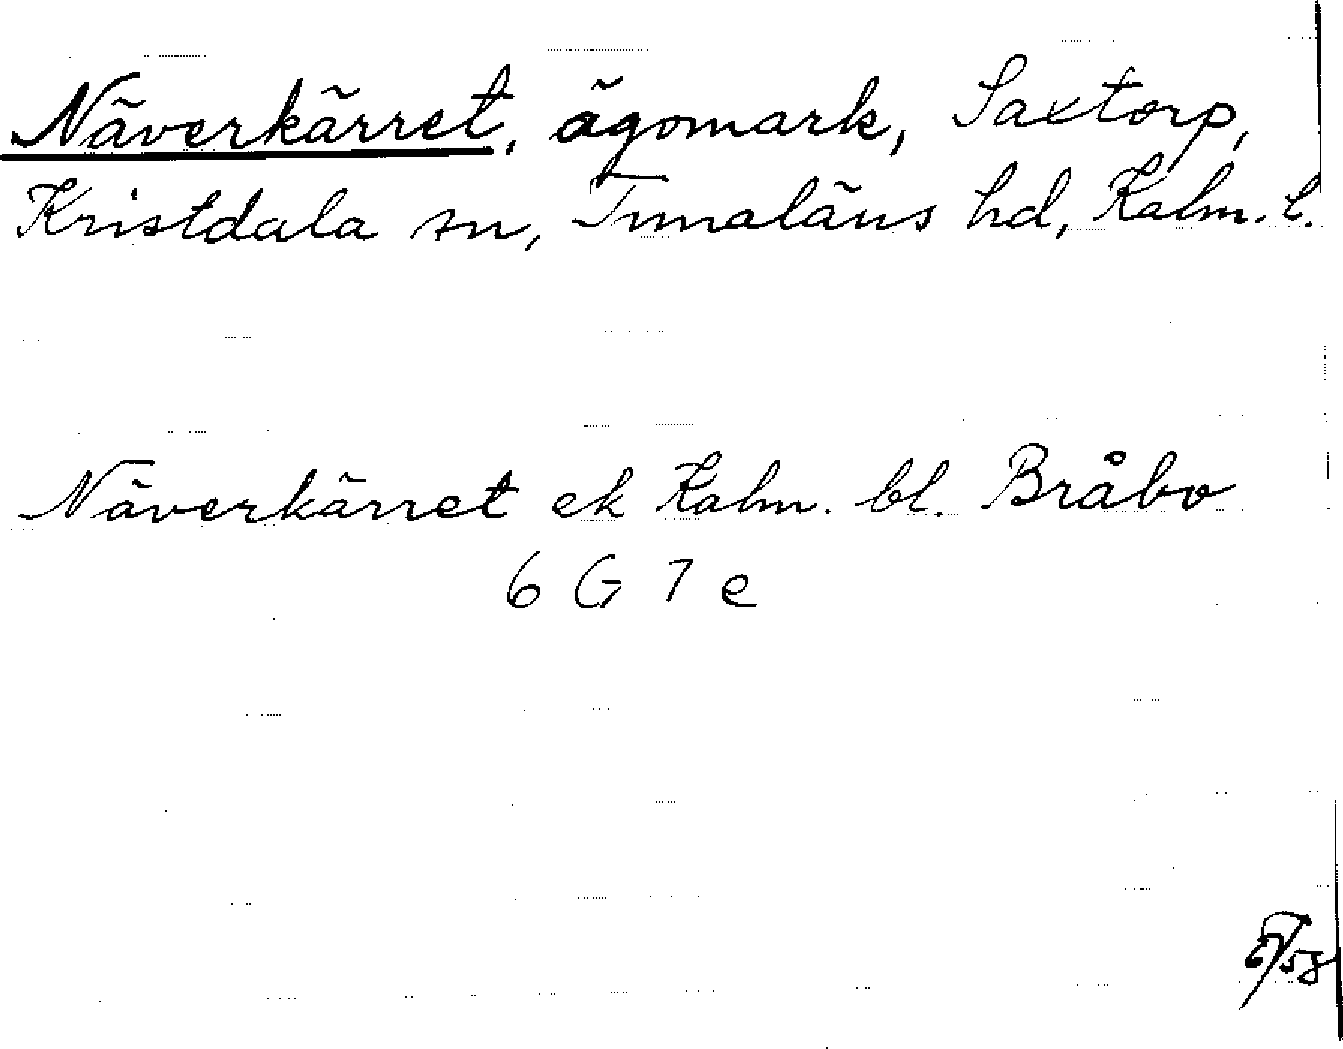 Näverkärret, ägomark, Saxtorp,
Kristdala sn, Tunaläns hd, Kalm. l.
Näverkärret ek Kalm. bl. Bråbo
6 G 7 e